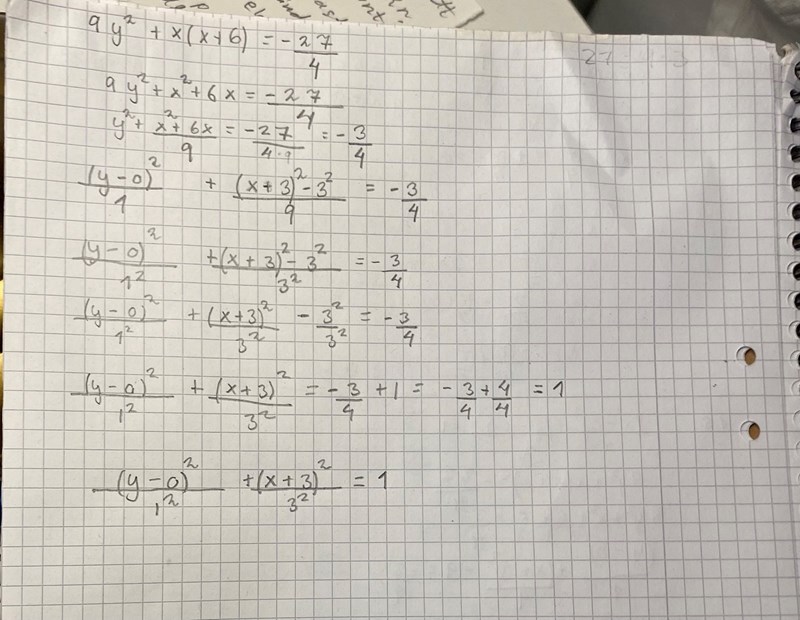 9y² + x(x+6) = -27/4
9y² + x² + 6x = -27/4
y² + (x² + 6x)/9 = -27/(4·9) = -3/4
(y-0)²/1 + ((x+3)² - 3²)/9 = -3/4
(y-0)²/1² + ((x+3)² - 3²)/3² = -3/4
(y-0)²/1² + (x+3)²/3² - 3²/3² = -3/4
(y-0)²/1² + (x+3)²/3² = -3/4 + 1 = -3/4 + 4/4 = 1
(y-0)²/1² + (x+3)²/3² = 1